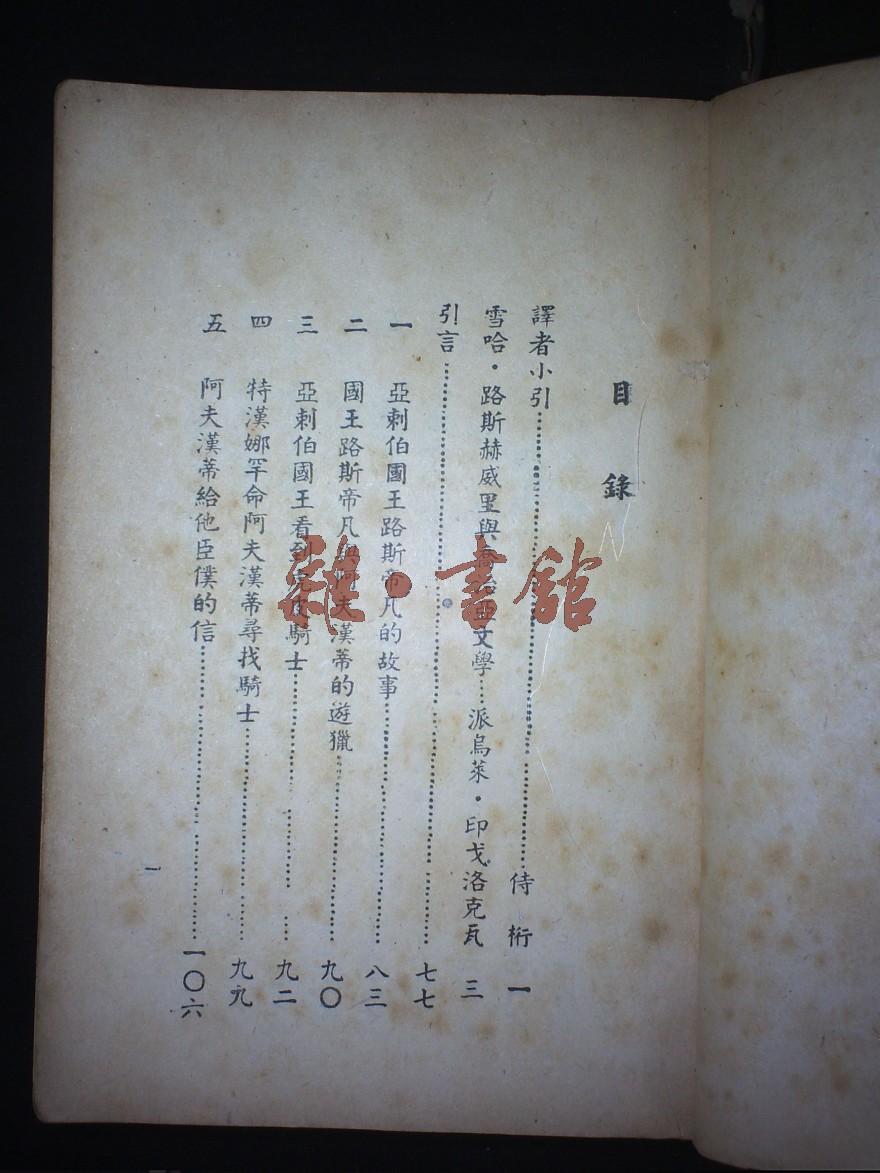 目錄
譯者小引……侍桁 一
雪哈·路斯赫威里與喬治亞文學……派烏萊·印戈洛克瓦 三
引言……七七
一 亞剌伯國王路斯帝凡的故事……八三
二 國王路斯帝凡與阿夫漢蒂的遊獵……九〇
三 亞剌伯國王看到虎皮騎士……九二
四 特漢娜罕命阿夫漢蒂尋找騎士……九九
五 阿夫漢蒂給他臣僕的信……一〇六
一
雜·書館